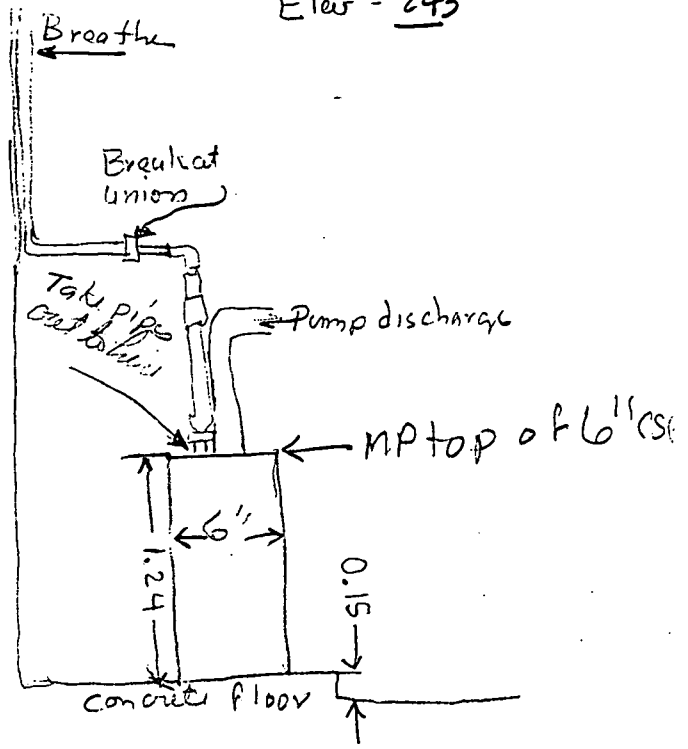 Elev - 245
Breathe
Break at
union
Take pipe
out
Pump discharge
MP top of 6" CSG
6"
1.24
0.15
concrete floor